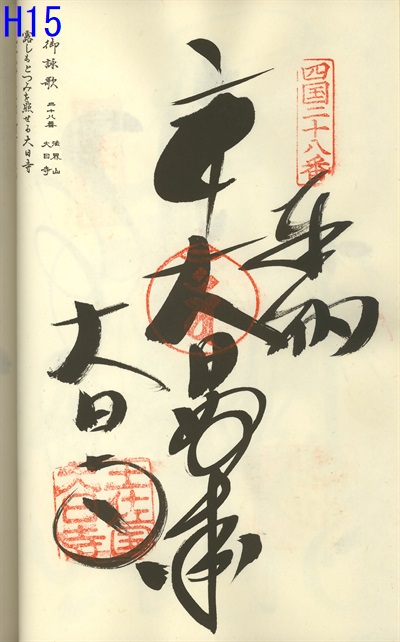 H15
四国二十八番
奉納
大日如来
大日寺
御詠歌
二十八番
法界山
大日寺
露しもとつみを照せる大日寺